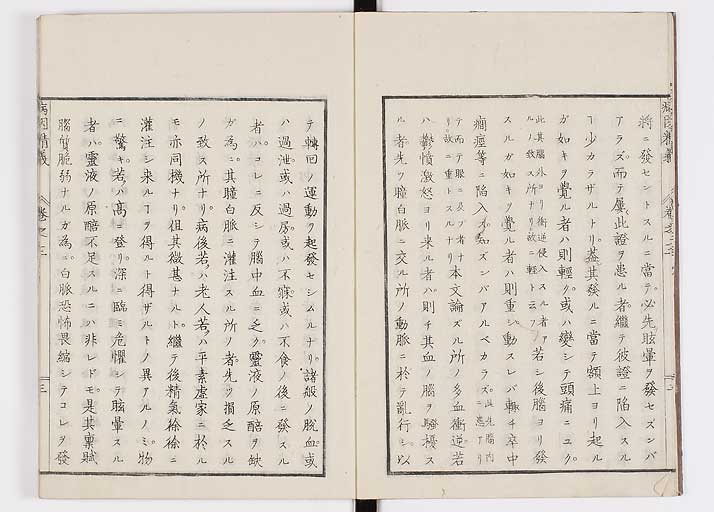 將ニ發セントスルニ當テ必先眩暈ヲ發セズンバ
アラズ。而テ屢此證ヲ患ル者繼テ彼證ニ陷入スル
ヿ少カラザルトリ。蓋其發ルニ當テ額上ヨリ起ル
ガ如キヲ覺ル者ハ則輕ク。或ハ變シテ頭痛ニユク。
此其腦外ヨリ衝逆侵入スル者
ルノ致ス所ナリ故ニ輕トス云フ
若シ後腦ヨリ發
スルガ如キヲ覺ル者ハ則重シ動スレバ輙チ卒中
癎痙等ニ陷入ズンバアルベカラズ。
此先腦内
ニ患アリ
テ而テ眼ニ及ブ者ナ
リ故ニ重トスルナリ
本文論ズル所ノ多血衝逆若
ハ鬱憤激怒ヨリ来ル者ハ則チ其血ノ腦ヲ騷擾ス
ル者先ヲ瞳白脈ニ交ル所ノ動脈ニ於テ亂行シ以
テ轉回ノ運動ヲ起發セシムルナリ。諸般ノ脫血或
ハ過泄或ハ過房或ハ不寐或ハ不食ノ後ニ發スル
者ハコレニ反シテ腦中血ニ乏ク靈液ノ原醅ヲ缺
ガ為ニ其瞳白脈ニ灌注スル所ノ者先ツ損乏スル
ノ致ス所ナリ病後若ハ老人若ハ平素虛家ニ於ル
モ亦同機ナリ但其微甚ナルト繼テ後精氣徐徐ニ
灌注シ来ルヿヲ得ルト得ザルトノ異アルノミ物
ニ驚キ若ハ高ニ登リ深ニ臨ミ危懼シテ眩暈スル
者ハ靈液ノ原醅不足スルニハ非レドモ是其稟賦
腦質脆弱ナルガ為ニ白脈恐怖畏縮シテコレヲ發
病因精義
卷之三
三